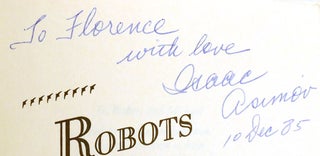 To Florence
with love
Isaac
Asimov
10 Dec 85
ROBOTS